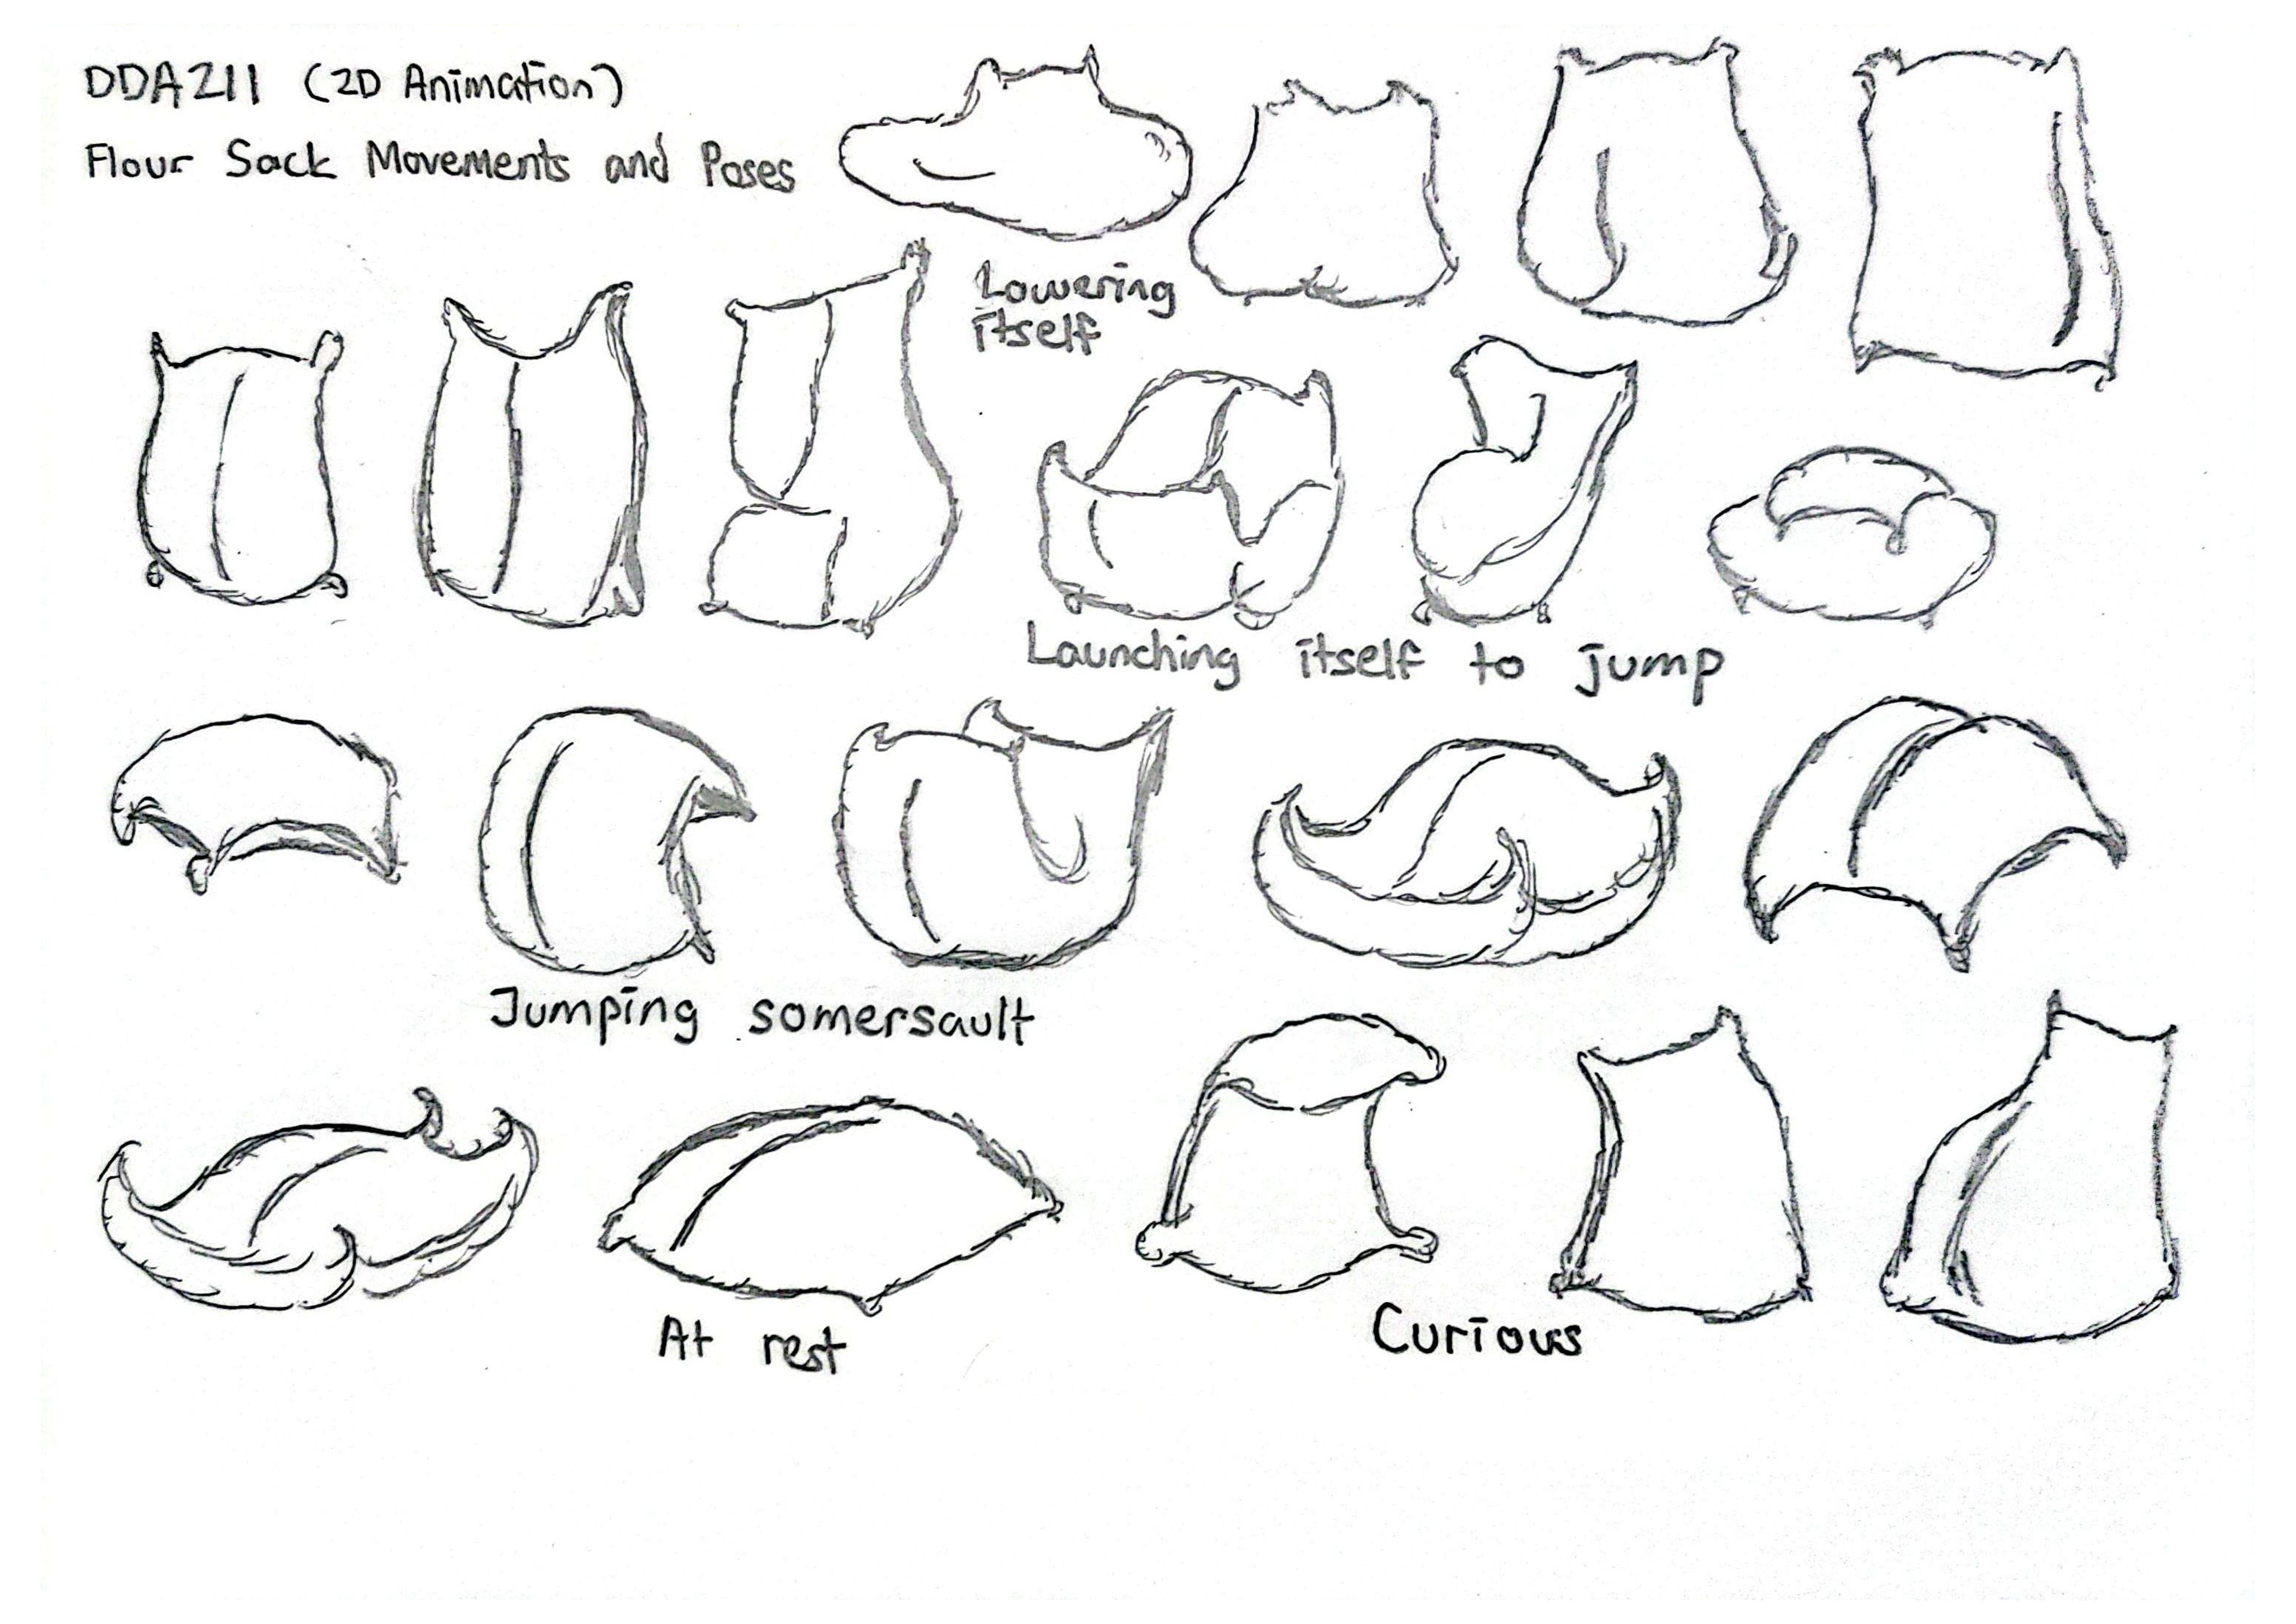 DDA211 (2D Animation)
Flour Sack Movements and Poses
Lowering
itself
Launching itself to jump
Jumping somersault
At rest
Curious